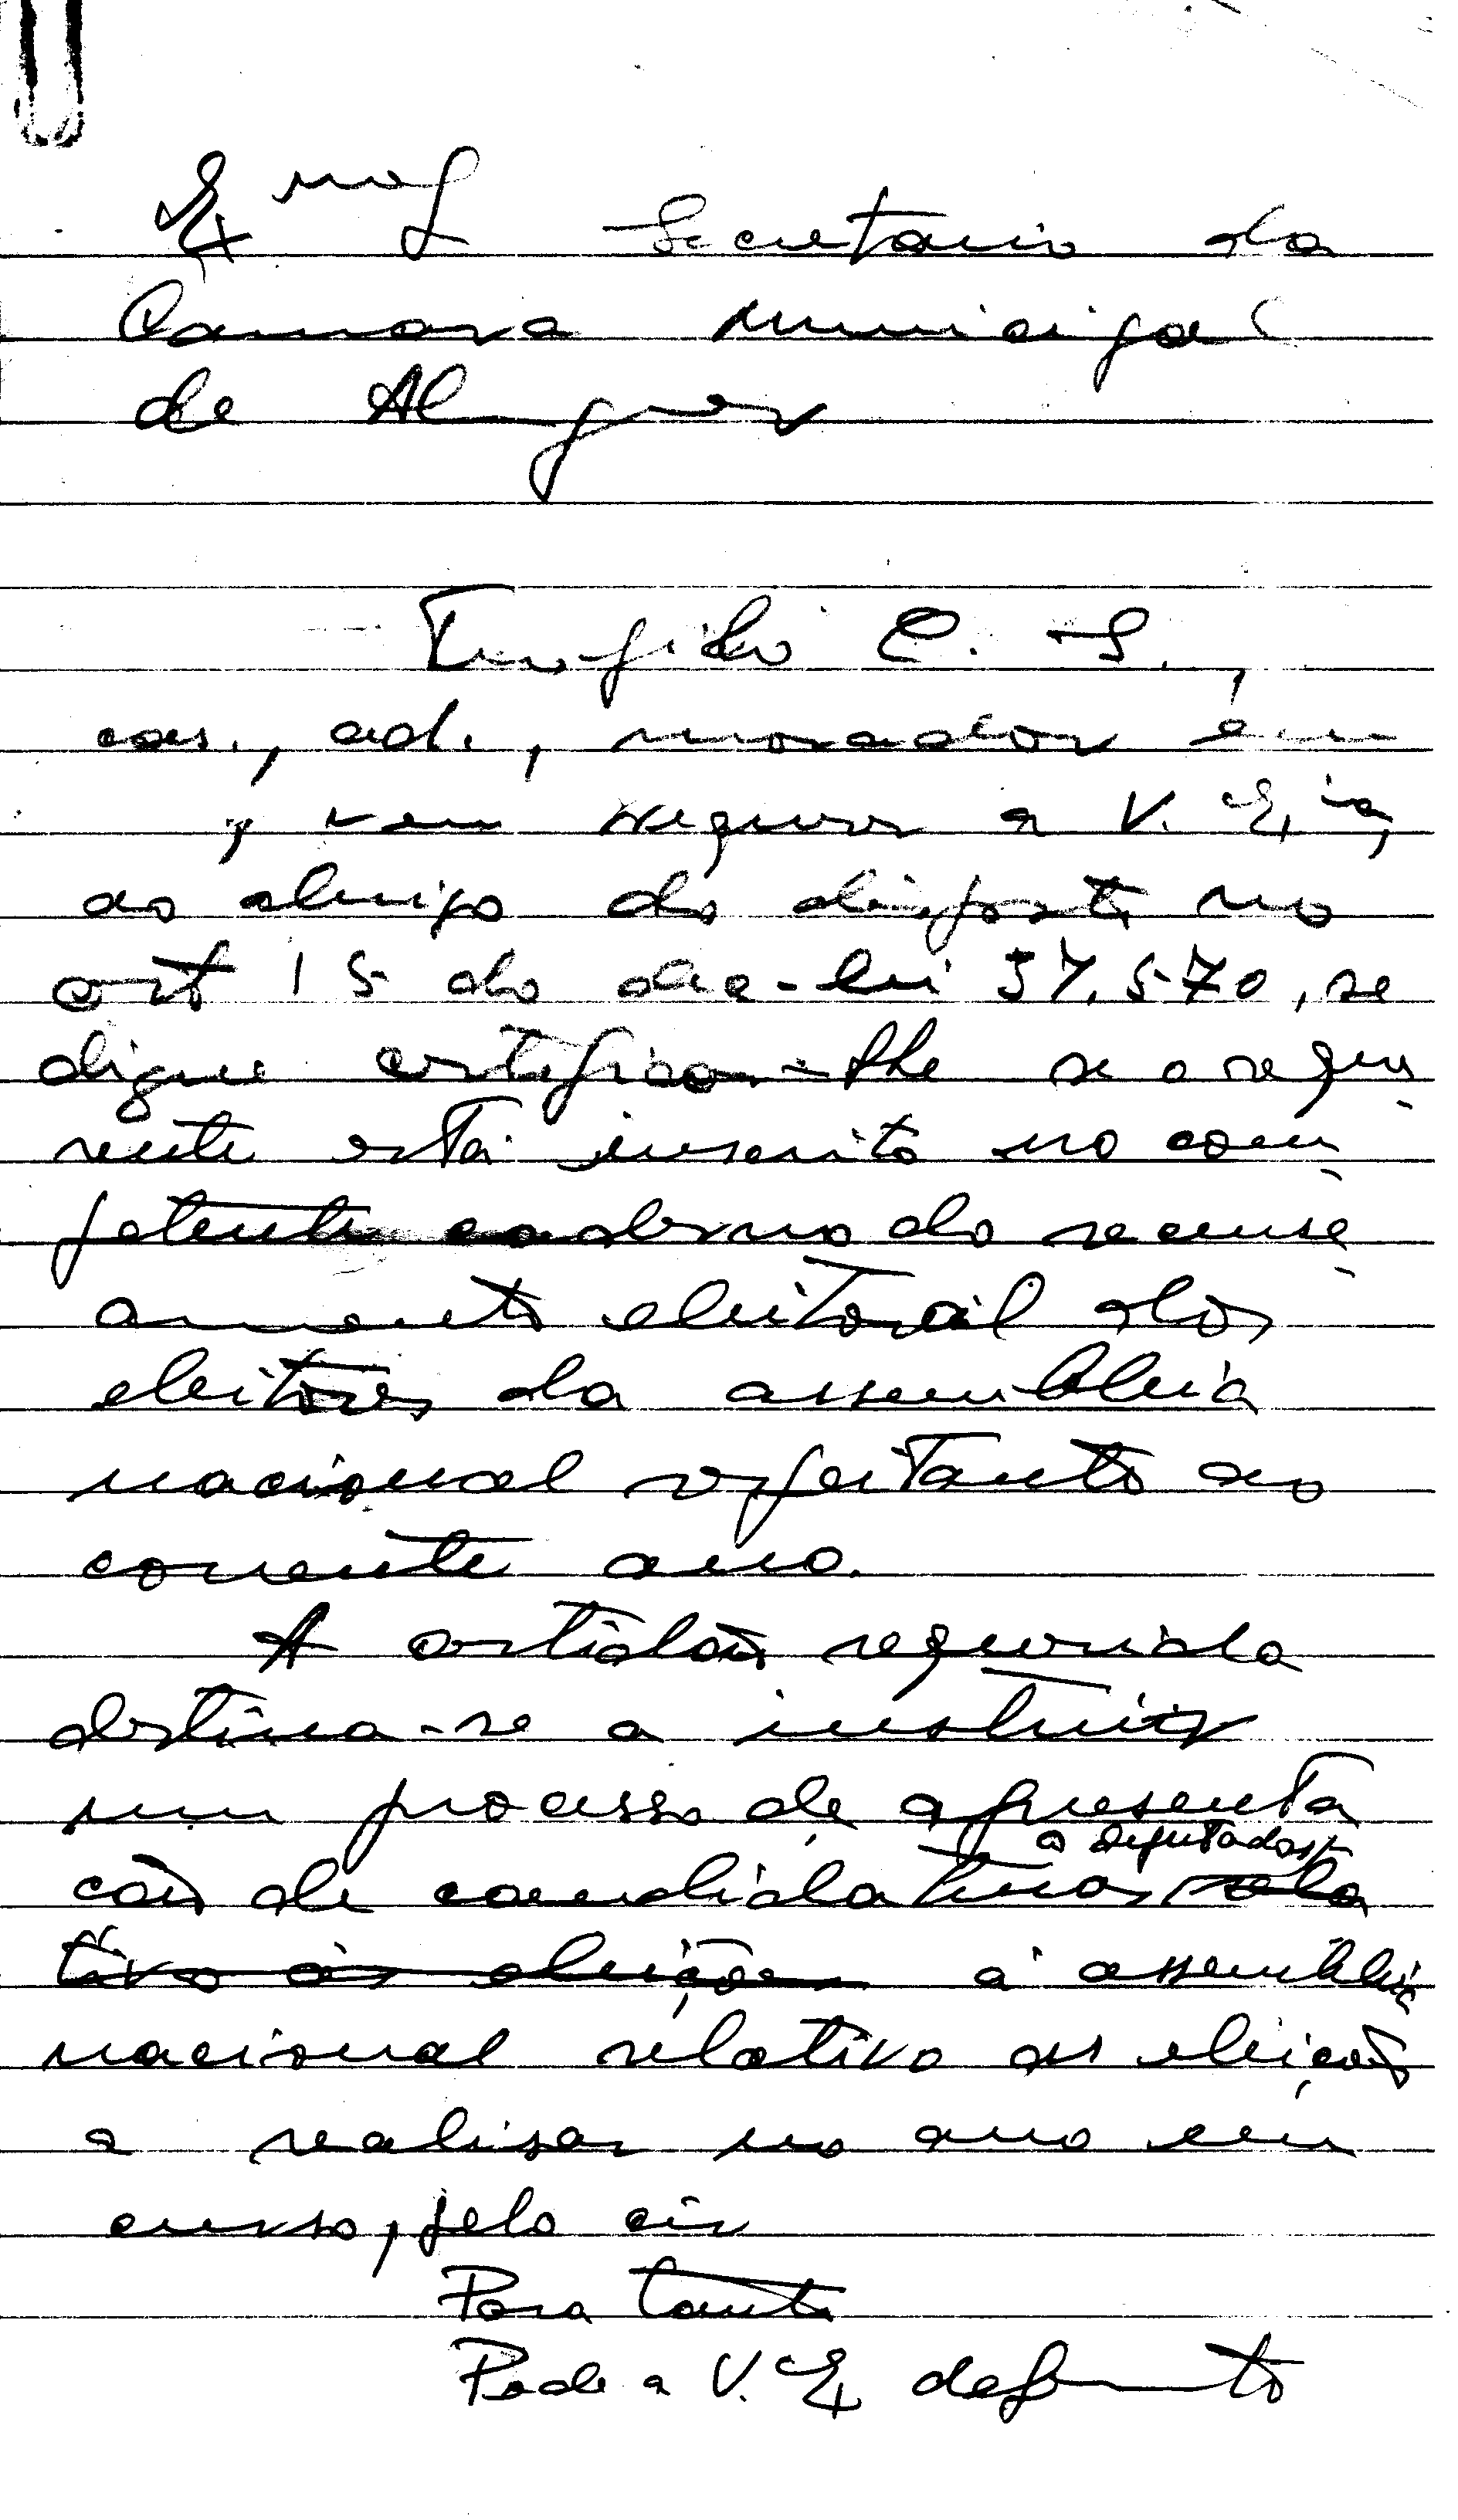 Exmo S Secretario da
Camara Municipal
de Alenquer
Teofilo C. S.,
cas., ad., morador em
, vem requerer a V. Ex.ia,
ao abrigo do disposto no
art 15 do dec-lei 37.570, se
digne certificar-lhe se o reque
rente está inscrito no com
petente caderno do recense
amento eleitoral dos
eleitores da assembleia
nacional respeitante ao
corrente ano.
A certidão requerida
destina-se a instruir
um processo de apresenta
ção de candidaturas a deputados rela
tivo às eleições à assembleia
nacional relativo às eleições
a realisar no ano em
curso, pelo cir
Para tanto
Pede a V. Ex deferimento